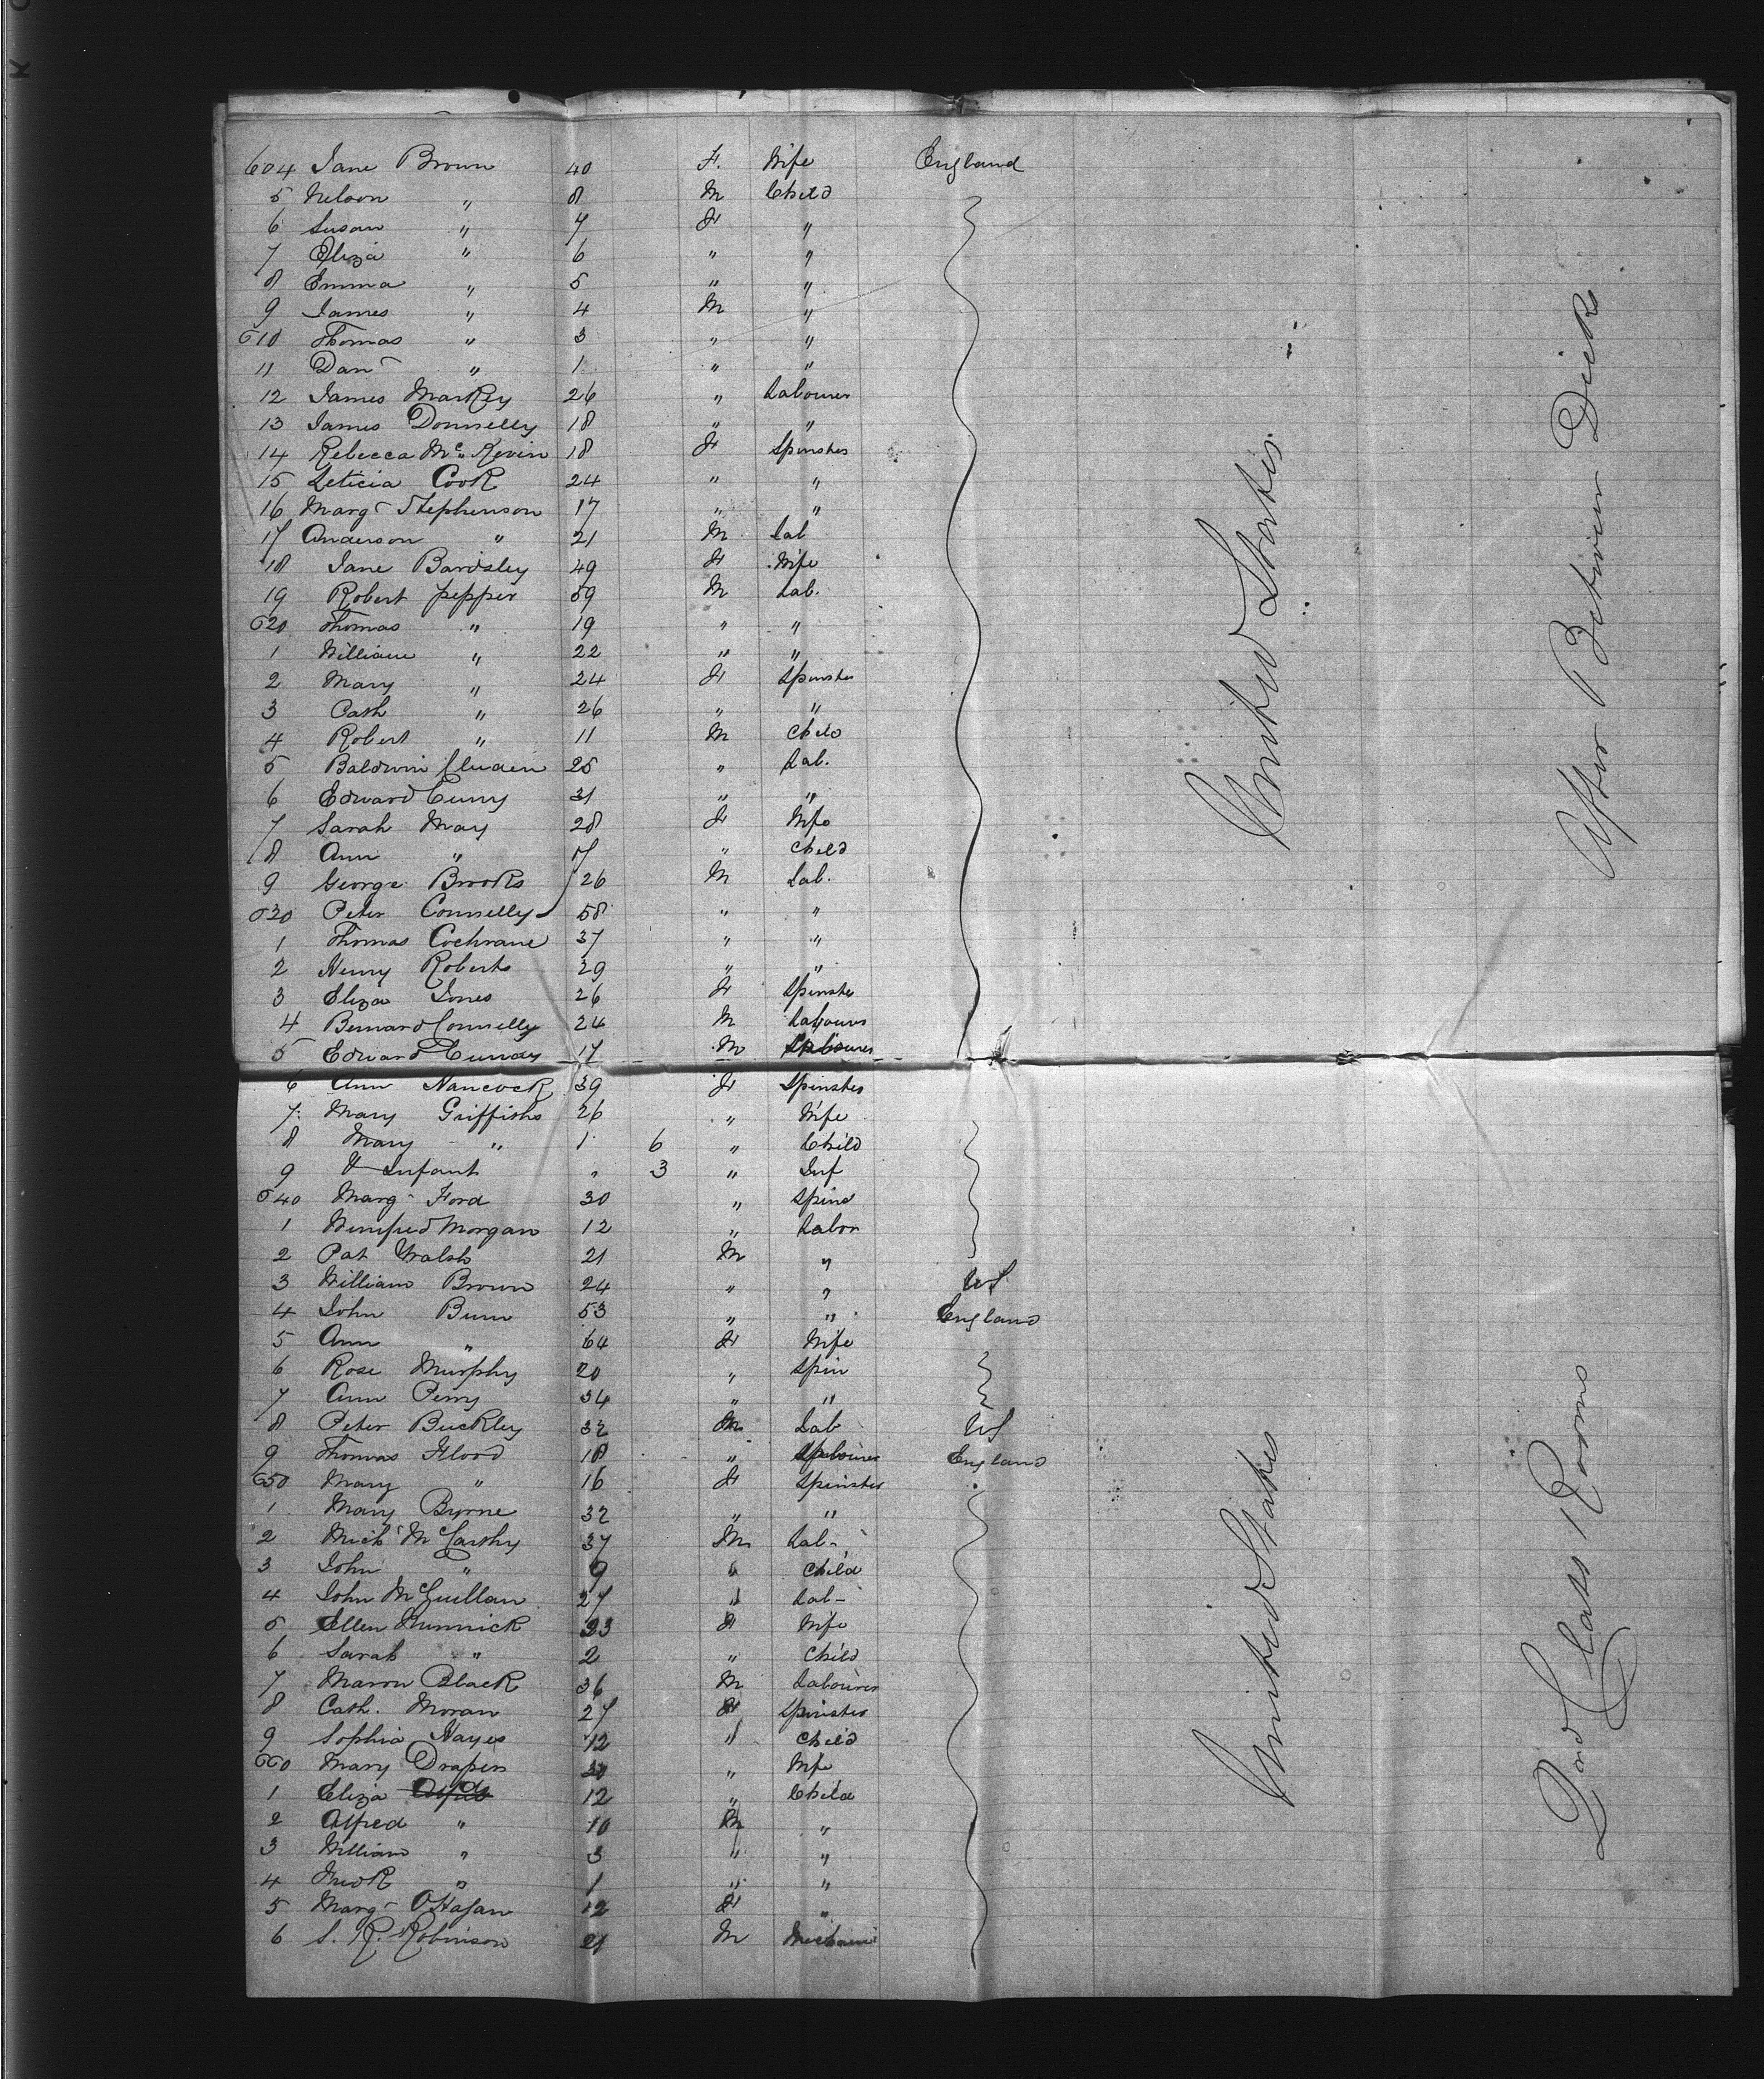 604 Jane Brown 40 F. Wife England
5 Nelson " 8 M Child
6 Susan " 7 F "
7 Eliza " 6 " "
8 Emma " 5 " "
9 James " 4 M "
610 Thomas " 3 " "
11 Dan " 1 " "
12 James Markey 26 " Labourer
13 James Donnelly 18 " "
14 Rebecca Mc Kevin 18 F Spinster
15 Leticia Cook 24 " "
16 Marg Stephenson 17 " "
17 Anderson " 21 M Lab
18 Jane Bardsley 49 F Wife
19 Robert Pepper 59 M Lab.
620 Thomas " 19 " "
1 William " 22 " "
2 Mary " 24 F Spinster
3 Cath " 26 " "
4 Robert " 11 M Child
5 Baldwin 25 " Lab.
6 Edward Curry 31 " "
7 Sarah May 28 F Wife
8 Ann " 7 " Child
9 George Brooks 26 M Lab.
630 Peter Connelly 58 " "
1 Thomas Cochrane 37 " "
2 Henry Roberts 29 " "
3 Eliza Jones 26 F Spinster
4 Bernard Connelly 24 M Labourer
5 Edward Cundy 17 M Labourer
6 Ann Hancock 39 F Spinster
7 Mary Griffiths 26 " Wife
8 Mary " 1 6 " Child
9 & Infant " 3 " Inf
640 Marg Ford 30 " Spins
1 Winifred Morgan 12 " Labor
2 Pat Walsh 21 M "
3 William Brown 24 " " US
4 John Bunn 53 " " England
5 Ann " 64 F Wife
6 Rose Murphy 20 " Spin
7 Ann Perry 34 " "
8 Peter Buckley 32 M Lab US
9 Thomas Flood 18 " Labourer England
650 Mary " 16 F Spinster
1 Mary Byrne 32 " "
2 Mick McCarthy 37 M Lab-
3 John " 9 " Child
4 John McQuillan 27 " Lab-
5 Ellen 23 F Wife
6 Sarah " 2 " Child
7 Black 36 M Labourer
8 Cath. Moran 27 F Spinster
9 Sophia Hayes 12 " Child
660 Mary Drapers 30 " Wife
1 Eliza 12 " Child
2 Alfred " 10 M "
3 William " 3 " "
4 " 1 " "
5 Marg O'Hagan 12 F "
6 S. R. Robinson 21 M
United States
After Between Decks
United States
2nd Class Rooms